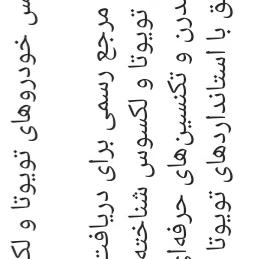 س خودروهای تویوتا و لک
مرجع رسمی برای دریافت
تویوتا و لکسوس شناخته
درن و تکنسین‌های حرفه‌ای
ق با استانداردهای تویوتا